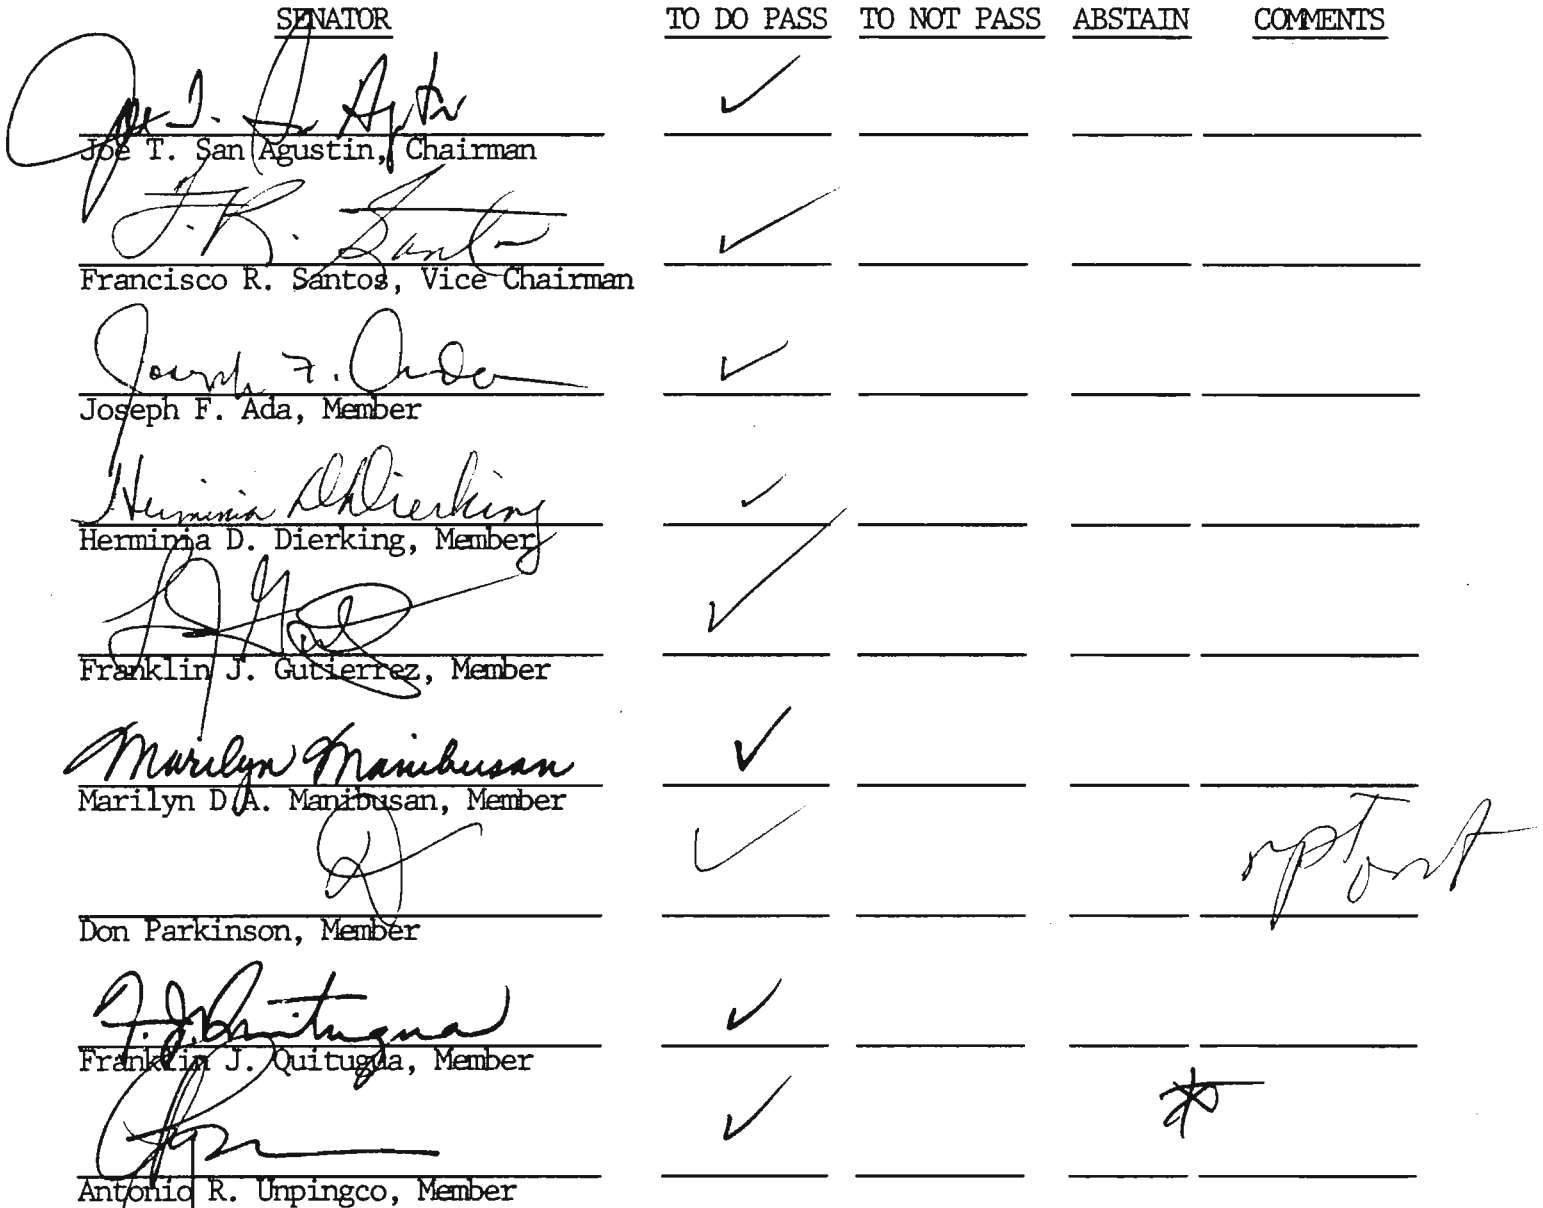 SENATOR TO DO PASS TO NOT PASS ABSTAIN COMMENTS
Joe T. San Agustin, Chairman
F. R. Santos
Francisco R. Santos, Vice Chairman
Joseph F. Ada
Joseph F. Ada, Member
Herminia D. Dierking
Herminia D. Dierking, Member
Franklin J. Gutierrez, Member
Marilyn Manibusan
Marilyn D.A. Manibusan, Member
Don Parkinson, Member
F. J. Quitugua
Franklin J. Quitugua, Member
Antonio R. Unpingco, Member